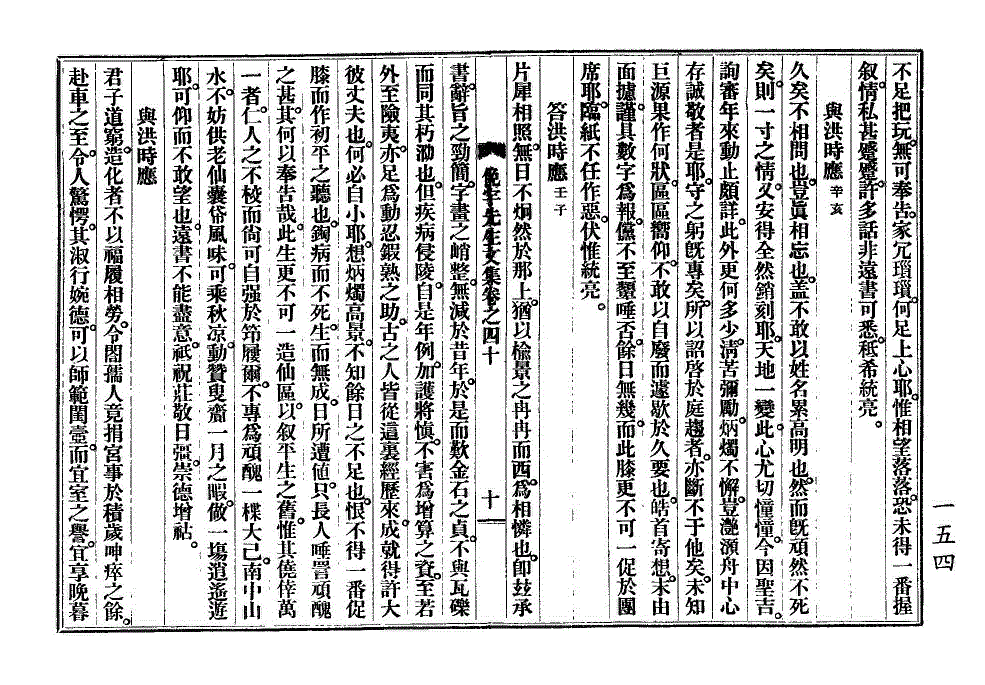 不足把玩。無可奉告。家冗瑣瑣。何足上心耶。惟相望落落。恐未得一番握
叙。情私甚蹙蹙。許多話非遠書可悉。秪希統亮。
與洪時應 辛亥
久矣不相問也。豈眞相忘也。盖不敢以姓名累高明也。然而旣頑然不死
矣。則一寸之情。又安得全然銷刻耶。天地一變。此心尤切憧憧。今因聖吉。
詢審年來動止頗詳。此外更何多少。淸苦彌勵。炳燭不懈。豈灔澦舟中心
存誠敬者是耶。守之躬旣專矣。所以詔啓於庭趨者。亦斷不于他矣。未知
巨源果作何狀。區區嚮仰。不敢以自廢而遽歇於久要也。皓首寄想。末由
面攄。謹具數字爲報。儻不至颦唾否。餘日無幾。而此膝更不可一促於團
席耶。臨紙不任作惡。伏惟統亮。
答洪時應 壬子
片犀相照。無日不炯然於那上。猶以楡景之冉冉而西。爲相憐也。卽玆承
書。辭旨之勁簡。字畫之峭整。無減於昔年。於是而歎金石之貞。不與瓦礫
而同其朽泐也。但疾病侵陵。自是年例。加護將愼。不害爲增算之資。至若
外至險夷。亦足爲動忍鍜熟之助。古之人皆從這裏經歷來。成就得許大
彼丈夫也。何必自小耶。想炳燭高景。不知餘日之不足也。恨不得一番促
膝而作初平之聽也。鋾病而不死。生而無成。日所遭値。只長人唾詈。頑醜
之甚。其何以奉告哉。此生更不可一造仙區。以叙平生之舊。惟其僥倖萬
一者。仁人之不校而尙可自强於笻屨爾。不專爲頑醜一樸大己。南中山
水。不妨供老仙囊帒風味。可乘秋凉。動贊叟齋一月之暇。做一塲逍遙遊
耶。可仰而不敢望也。遠書不能盡意。祗祝莊敬日彊。崇德增祜。
與洪時應
君子道窮。造化者不以福履相勞。令閤孺人竟捐宮事於積歲呻瘁之餘。
赴車之至。令人驚愕。其淑行婉德。可以師範閨壼。而宜室之譽。宜享晩暮
俛宇先生文集卷之四十
十
一五四